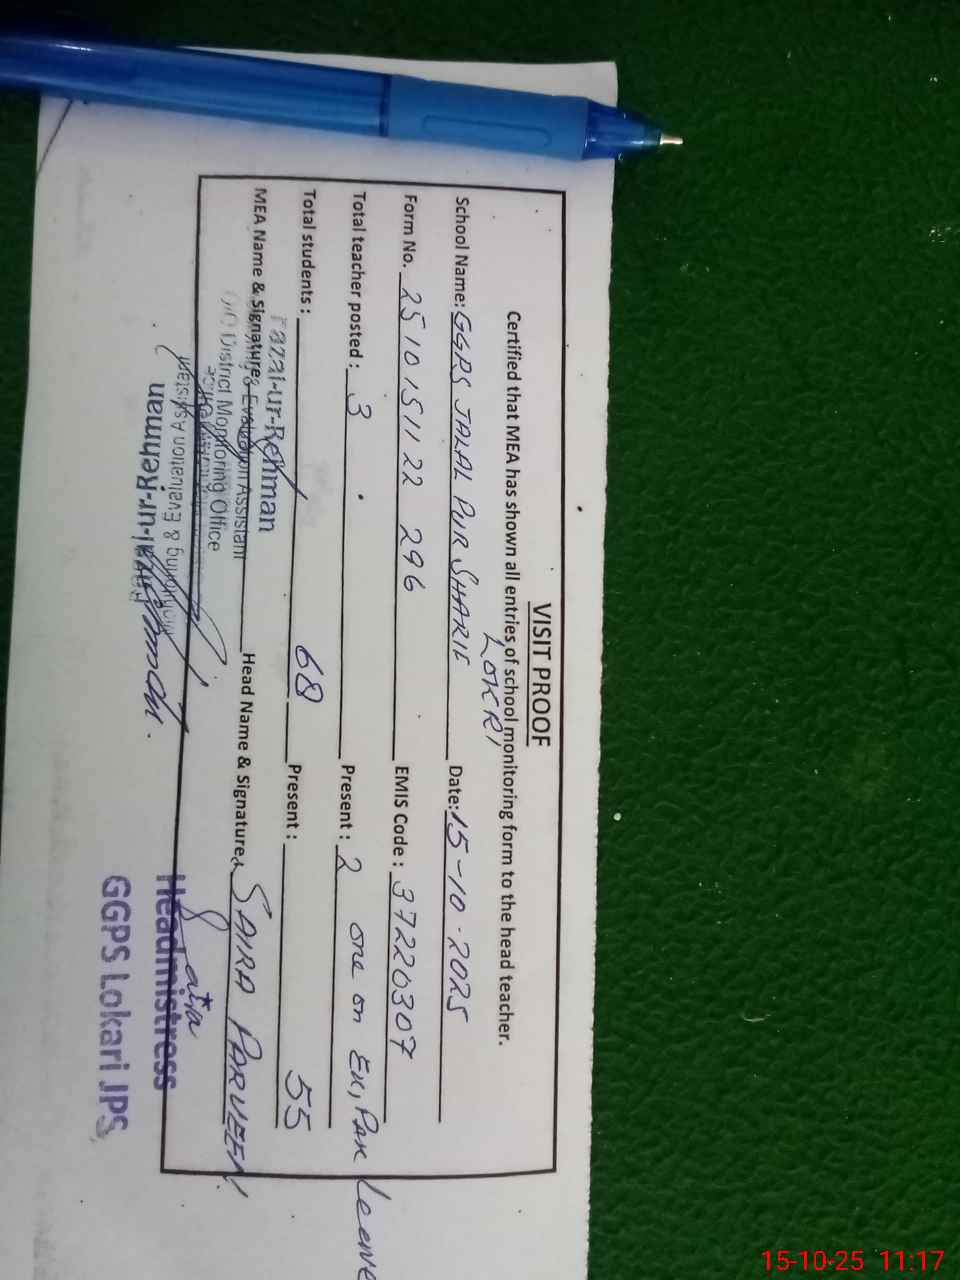 VISIT PROOF
Certified that MEA has shown all entries of school monitoring form to the head teacher.
LOKRI
School Name: GGPS JALAL PUR SHARIF Date: 15-10-2025
Form No. 25 10 15 11 22 296 EMIS Code: 37220307
Total teacher posted: 3 Present: 2 one on Ex, Pak leave
Total students: 68 Present: 55
MEA Name & Signature Head Name & Signature SAIRA PARVEEN
Fazal-ur-Rehman
Monitoring & Evaluation Assistant
O/O District Monitoring Office
Headmistress
GGPS Lokari JPS
Monitoring & Evaluation Assistant
Fazal-ur-Rehman
15-10-25 11:17